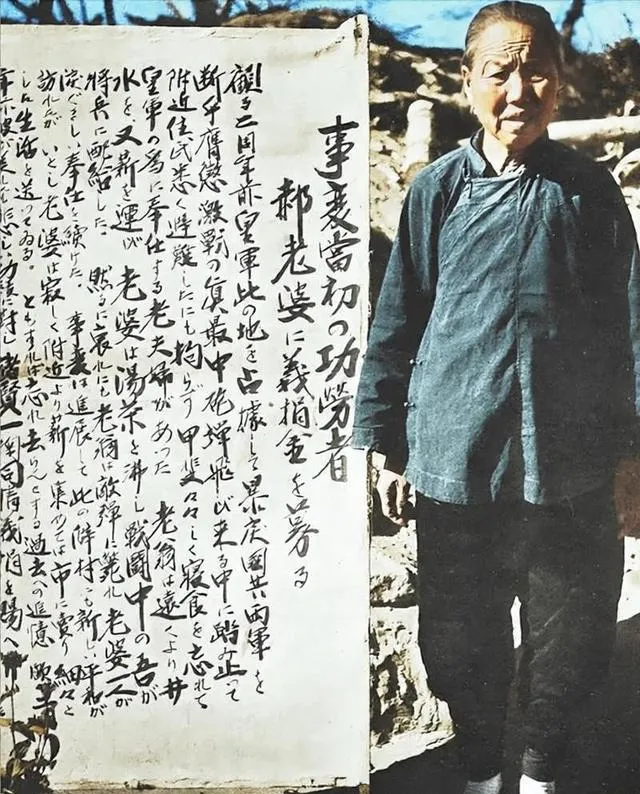 事變當初の功勞者
郝老婆に義捐金を募る
顧る二周年前皇軍此の地を占據して暴戻國共両軍を
断乎膺懲激戦の眞最中砲弾飛び来る中に踏み止って
附近住民悉く避難したにも拘らず甲斐々々しく寝食を忘れて
皇軍の為に奉仕する老夫婦があった 老翁は遠くより井
水を又薪を運び 老婆は湯茶を沸し戦闘中の吾が
将兵に配給した。然るに哀れにも老翁は敵弾に斃れ老婆一人が
しい奉仕を續けた。事変は進展して此の僻村にも新しい平和が
訪れたが いとし老婆は寂しく附近より薪を集めては市に賣り細々と
した生活を送ってゐる。ともすれば忘れ去らんとする過去への追憶